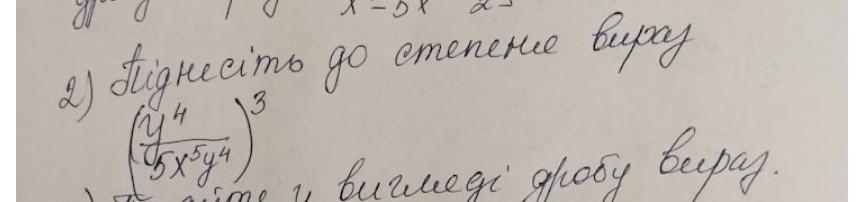 x - 5x 25
2) Піднесіть до степеня вираз
(y⁴/5x⁵y⁴)³
у вигляді дробу вираз.